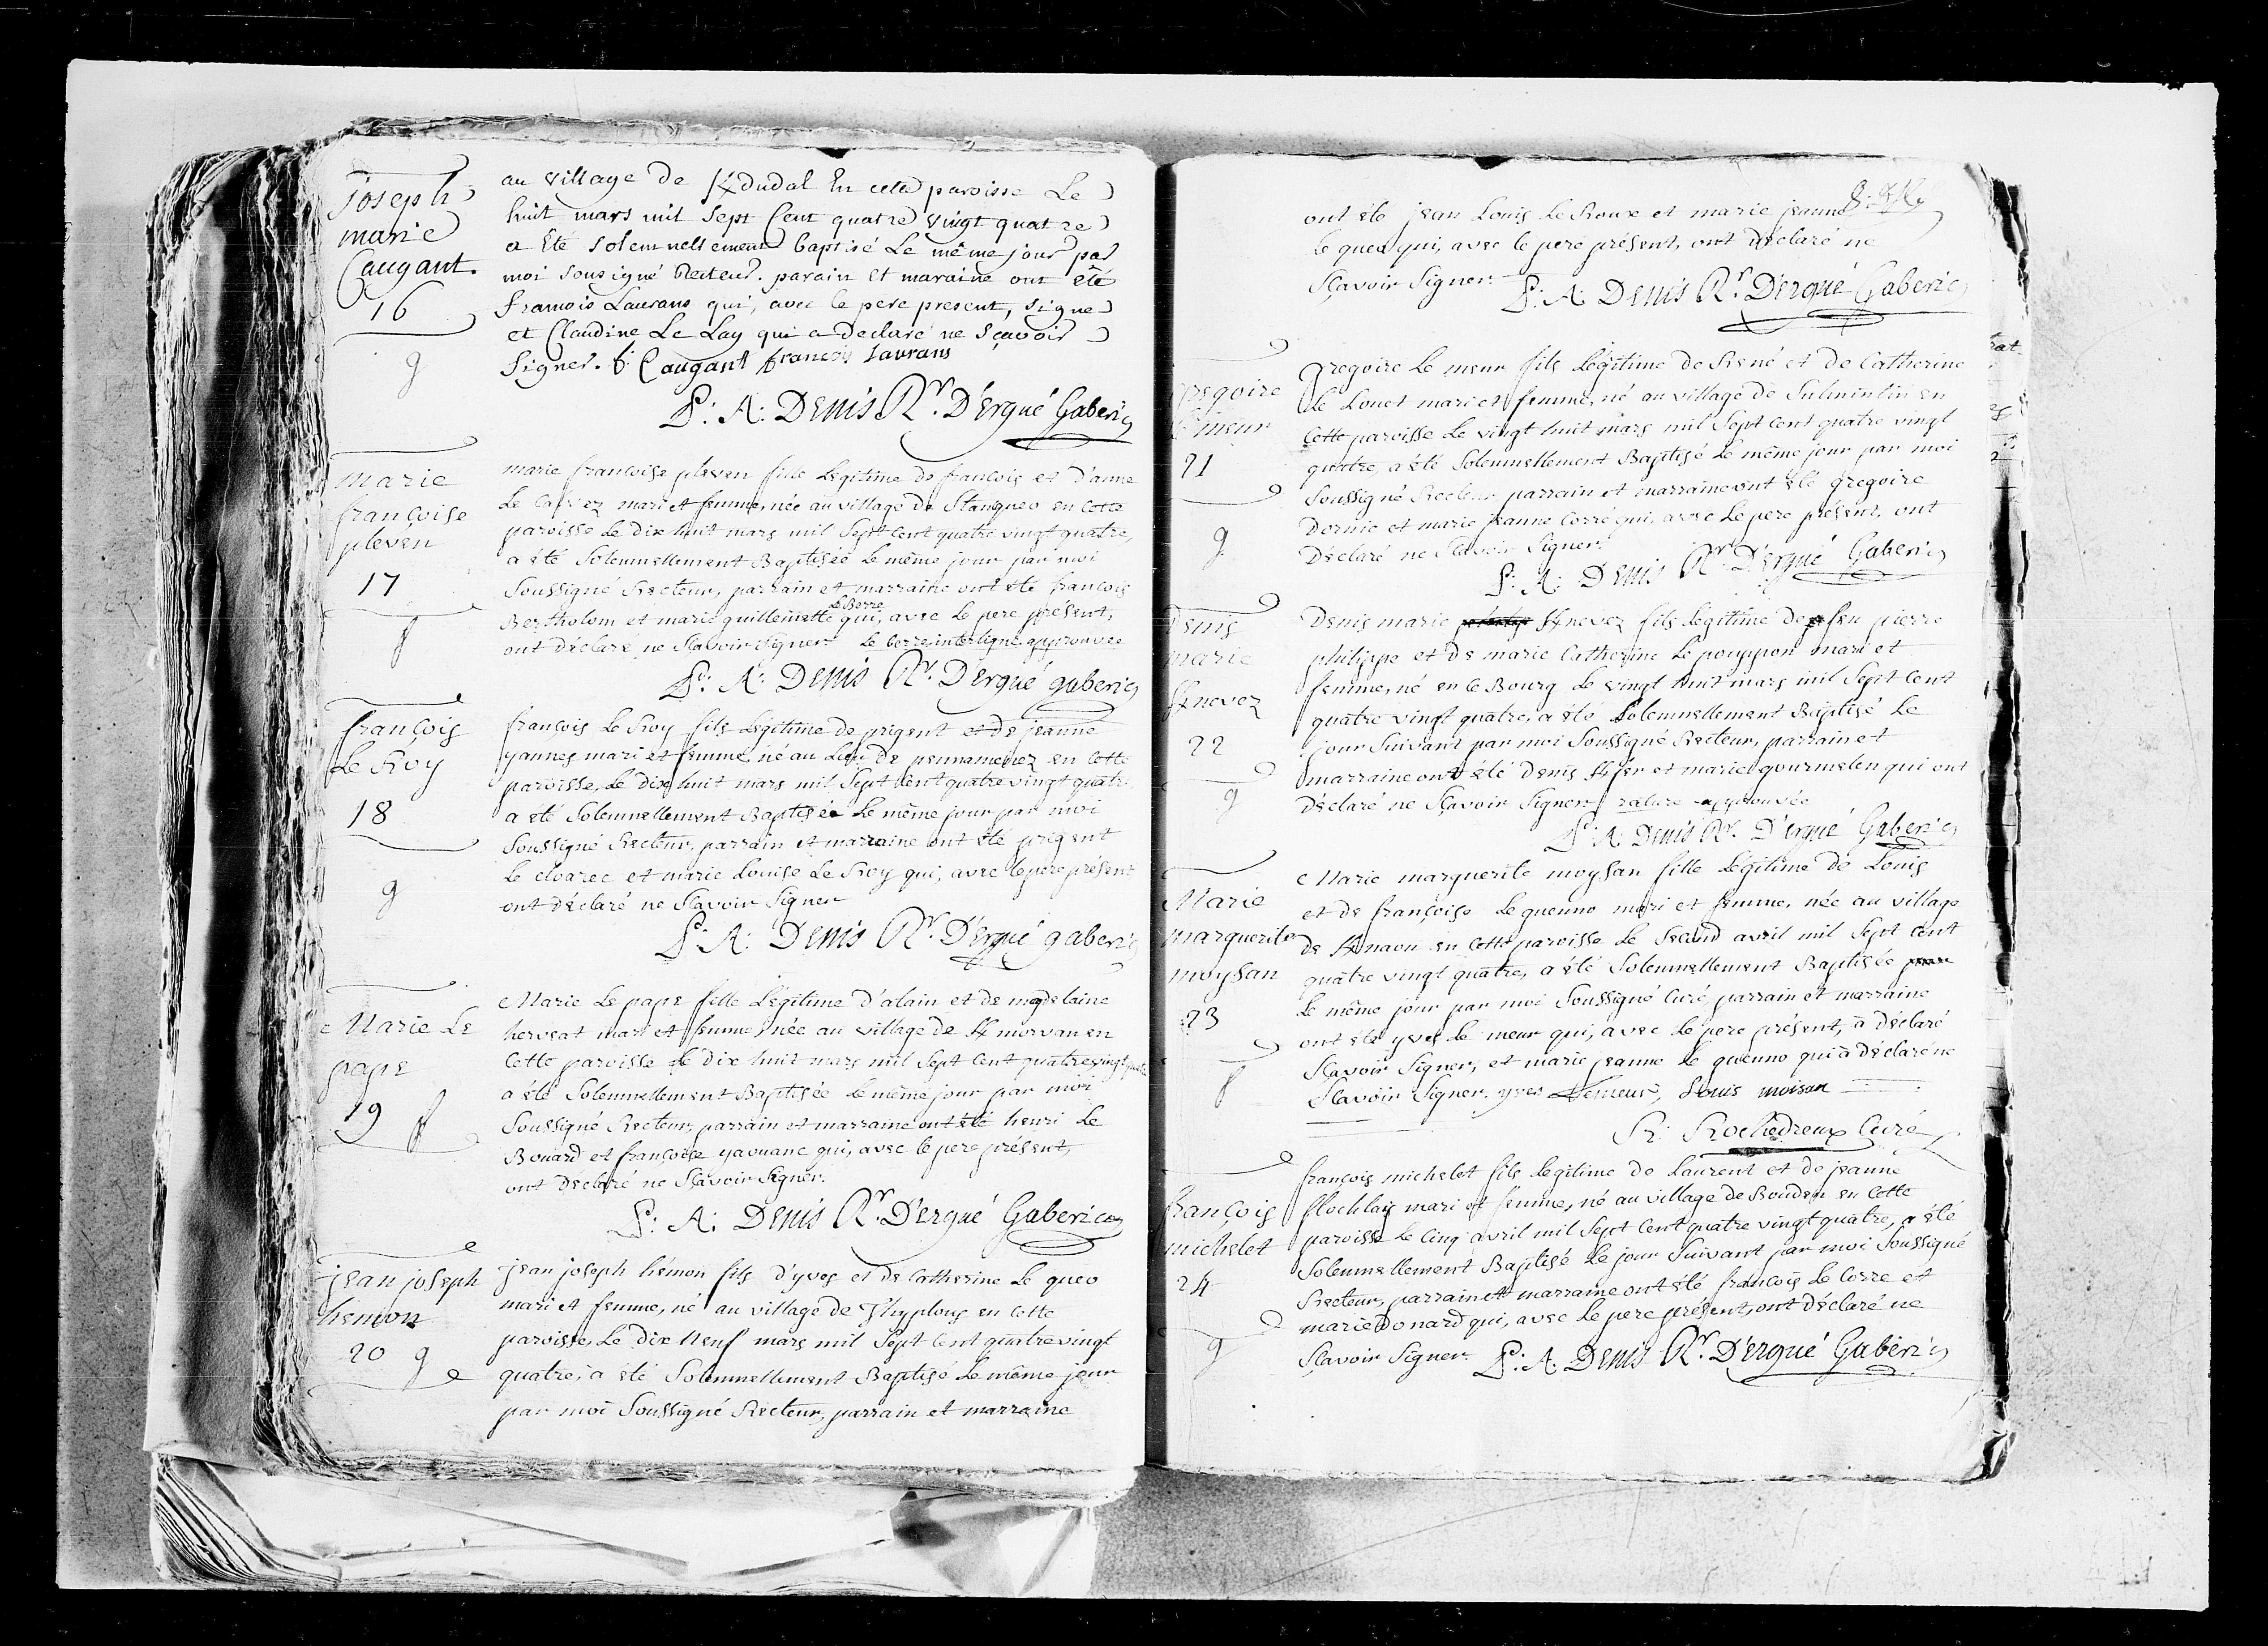 joseph
marie
Caugant.
16
g
au village de K/dudal En cette paroisse Le
huit mars mil sept Cent quatre vingt quatre
a Eté solemnellement baptisé Le même jour par
moi sousigné Recteur. parain Et maraine ont été
francois Laurans qui, avec le pere present, signe
et Claudine Le Lay qui a declaré ne Sçavoir
Signer. f: Caugant francois Laurans
P: A: Denis Rr. D'Ergué Gaberic
marie
françoise
pleven
17
f
marie francoise pleven fille Legitime de francois et d'anne
Le mari et femme, née au village de Stangueo en Cette
paroisse Le dix huit mars mil Sept Cent quatre vingt quatre,
a été Solemnellement Baptisée Le même jour par moi
Soussigné Recteur, parrain et marraine ont été françois
Bertholom et marie guillemette Le Berre qui, avec le pere présent,
ont déclaré ne Sçavoir Signer. interligne approuvée
P: A: Denis Rr. D'ergué gaberic
françois
Le Roy
18
g
françois Le Roy fils Legitime de prigent et de jeanne
yannes mari et femme, né au Lieu de pennamenez en Cette
paroisse, Le dix huit mars mil Sept Cent quatre vingt quatre
a été Solemnellement Baptisé Le même jour par moi
Soussigné Recteur, parrain et marraine ont été prigent
Le et marie Louise Le Roy qui, avec le pere présent
ont déclaré ne Sçavoir Signer
P: A: Denis Rr. D'Ergué gaberic
Marie Le
pape
19 f
Marie Le pape fille Légitime d'alain et de madelaine
herveat mari et femme, née au village de K/morvan en
Cette paroisse Le dix huit mars mil Sept Cent quatre vingt quatre
a été Solemnellement Baptisée Le même jour par moi
Soussigné Recteur, parrain et marraine ont été henri Le
Bouard et françoise yaouanc qui, avec le pere présent,
ont Declaré ne Sçavoir Signer.
P: A: Denis Rr. D'Ergué Gaberic
jean joseph
hémon
20 g
jean joseph hémon fils d'yves et de Catherine Le queo
mari et femme, né au village de en Cette
paroisse, Le dix Neuf mars mil Sept Cent quatre vingt
quatre, a été Solemnellement Baptisé Le même jour
par moi Soussigné Recteur, parrain et marraine
ont été jean Louis Le Roux et marie jeanne
le queo qui, avec le pere présent, ont déclaré ne
Sçavoir Signer. P: A: Denis Rr. D'Ergué Gaberic
gregoire
Le meur
21
g
Gregoire Le meur fils Légitime de René et de Catherine
Le Louet mari et femme, né au village de Sulvintin en
Cette paroisse Le vingt huit mars mil Sept Cent quatre vingt
quatre, a été Solemnellement Baptisé Le même jour par moi
Soussigné Recteur parrain et marraine ont été gregoire
Dornic et marie jeanne Corré qui, avec Le pere présent, ont
Déclaré ne Sçavoir Signer.
P: A: Denis Rr. D'Ergué Gaberic
Denis
marie
K/nevez
22
g
Denis marie K/nevez fils Legitime de feu pierre
philippe et de marie Catherine Le pouppon mari et
femme, né en ce Bourg Le vingt huit mars mil Sept Cent
quatre vingt quatre, a été Solemnellement Baptisé Le
jour Suivant par moi Soussigné Recteur, parrain et
marraine ont été Denis et marie gourmelen qui ont
Déclaré ne Sçavoir Signer. rature approuvée
P: A: Denis Rr. D'ergué Gaberic
Marie
marguerite
moysan
23
f
Marie marguerite moysan fille Légitime de Louis
et de françoise Le guenno mari et femme, née au village
de K/naou en Cette paroisse Le Second avril mil Sept Cent
quatre vingt quatre, a été Solemnellement Baptisée
Le même jour par moi Soussigné Curé, parrain et marraine
ont été yves Le meur qui, avec Le pere présent, a déclaré
Sçavoir Signer, et marie jeanne Le guenno qui a déclaré ne
Sçavoir Signer. yves Lemeur, Louis moisan
R: Rochedreux Curé
françois
michelet
24
g
françois michelet fils Legitime de Laurent et de jeanne
flochlay mari et femme, né au village de Bouden en Cette
paroisse Le Cinq avril mil Sept Cent quatre vingt quatre, a été
Solemnellement Baptisé Le jour Suivant par moi Soussigné
Recteur, parrain et marraine ont été françois Le Corre et
marie Donard qui, avec Le pere présent, ont déclaré ne
Sçavoir Signer. P: A: Denis Rr. D'ergué Gaberic